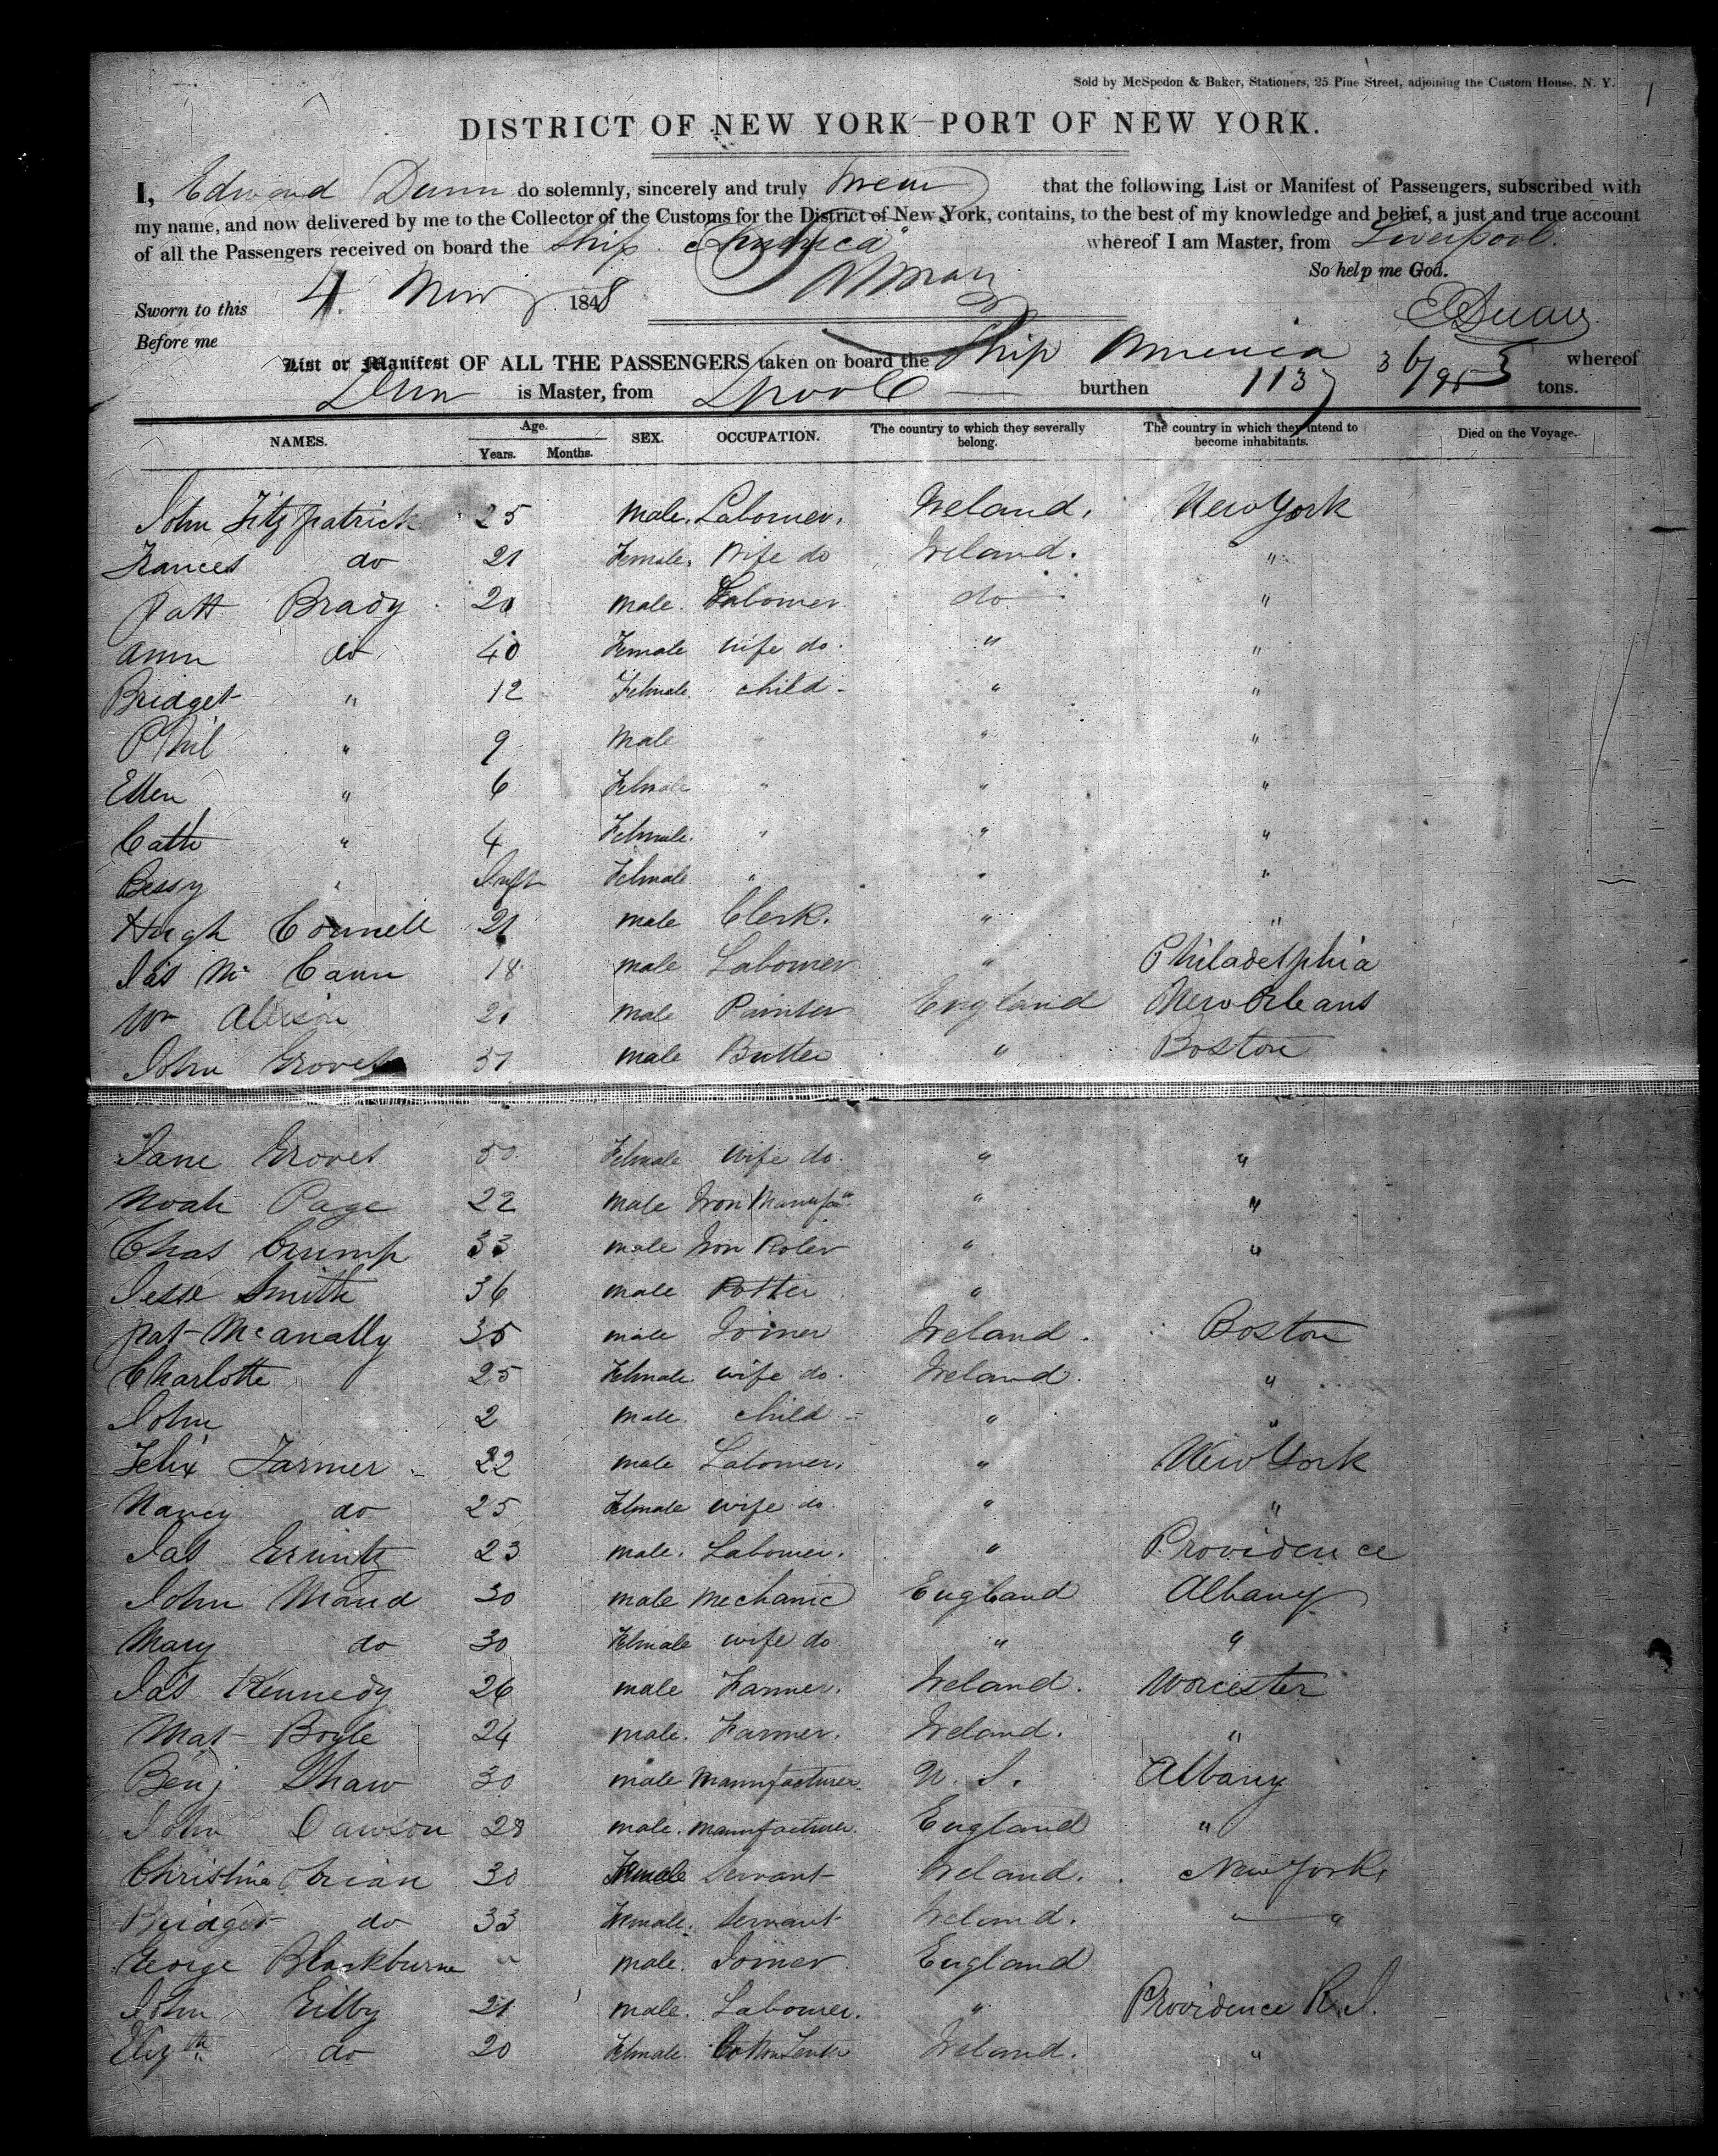 Sold by McSpedon & Baker, Stationers, 25 Pine Street, adjoining the Custom House, N. Y.
1
DISTRICT OF NEW YORK—PORT OF NEW YORK.
I, Edward Dunn do solemnly, sincerely and truly swear that the following List or Manifest of Passengers, subscribed with
my name, and now delivered by me to the Collector of the Customs for the District of New York, contains, to the best of my knowledge and belief, a just and true account
of all the Passengers received on board the Ship America whereof I am Master, from Liverpool.
So help me God.
Sworn to this 4 1848
Before me
E Dunn
List or Manifest OF ALL THE PASSENGERS taken on board the Ship America whereof
Dunn is Master, from Lpool burthen 1137 36/95 tons.
NAMES. Age. Years. Months. SEX. OCCUPATION. The country to which they severally belong. The country in which they intend to become inhabitants. Died on the Voyage.
John Fitzpatrick 25 male. Labourer. Ireland. New York
Frances do 21 Female. Wife do Ireland. "
Patt Brady 20 male. Labourer do "
Ann do 40 Female wife do. " "
Bridget " 12 Female. child " "
Phil " 9 Male " " "
Ellen " 6 Female " " "
Cath " 4 Female. " " "
Bessy " Inft Female " " "
Hugh Connell 21 male Clerk. " "
Jas Mc Cann 18 male Labourer " Philadelphia
Wm Allison 21 male Painter England New Orleans
John Groves 37 male " Boston
Jane Groves 30 Female wife do. " "
Noah Page 22 male Iron Manufr " "
Chas Crump 33 male Iron Roler " "
Jesse Smith 36 male Potter "
Pat McAnally 35 male Joiner Ireland. Boston
Charlotte 25 Female. wife do. Ireland. "
John 2 male. child " "
Felix Farmer 22 male Labourer. " New York
Nancy do 25 Female wife do " "
Jas 23 male. Labourer. " Providence
John Maud 30 male Mechanic England Albany
Mary do 30 Female wife do " "
Jas Kennedy 26 male Farmer. Ireland. Worcester
Mat Boyle 24 male. Farmer. Ireland. "
Benj Shaw 30 male Manufacturer. U. S. Albany
John Dawson 28 male. manufacturer. England "
Christina Brian 30 Female Servant Ireland. New York
Bridget do 33 Female. Servant Ireland. " "
George Blackburne " male. Joiner England
John Gilby 21 male. Labourer. " Providence R. I.
Elizth do 20 Female. Ireland. "